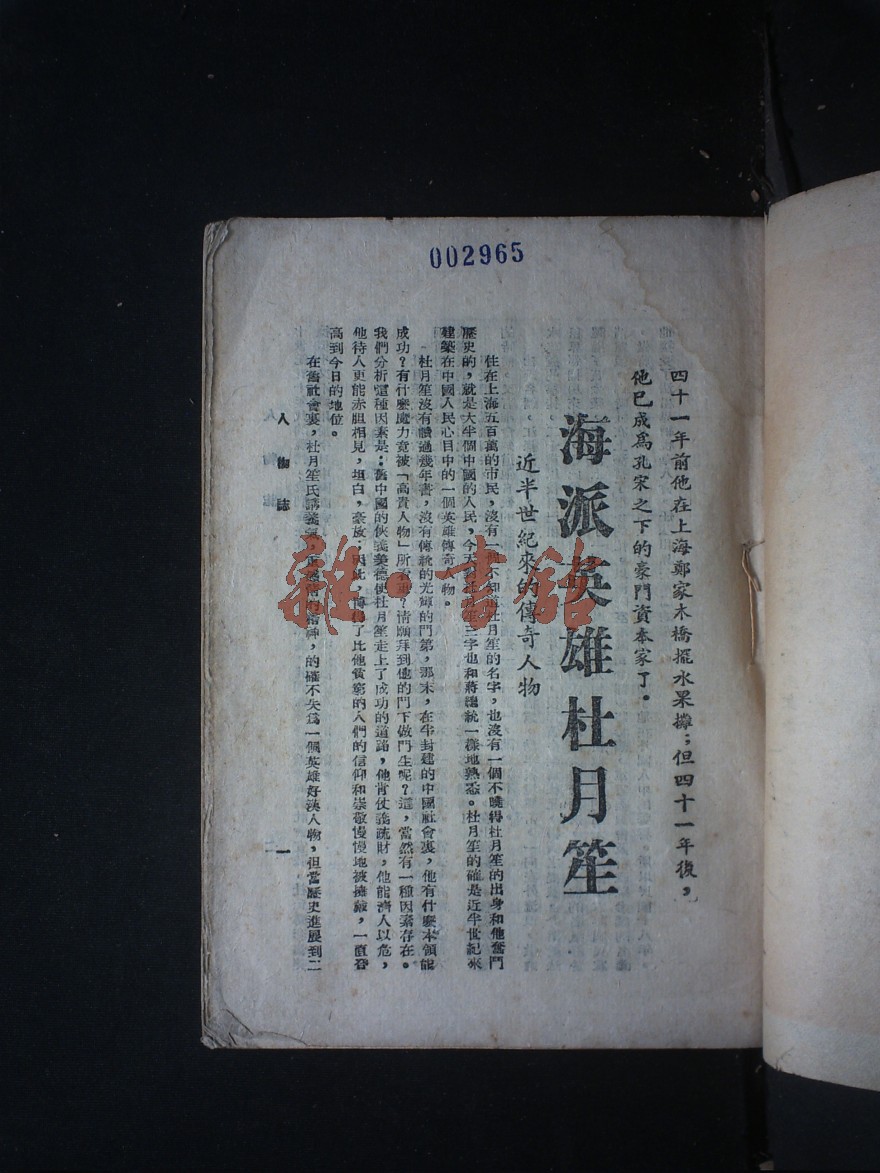 002965
四十一年前他在上海鄭家木橋擺水果攤；但四十一年後，
他已成爲孔宋之下的豪門資本家了。
海派英雄杜月笙
近半世紀來的傳奇人物
住在上海五百萬的市民，沒有一個不知道杜月笙的名字，也沒有一個不曉得杜月笙的出身和他奮鬥
歷史的，就是大半個中國的人民，今天對杜月笙三字也和蔣總統一樣地熟悉。杜月笙的確是近半世紀來
建築在中國人民心目中的一個英雄傳奇人物。
杜月笙沒有讀過幾年書，沒有傳統的光輝的門第，那末，在半封建的中國社會裏，他有什麽本領能
成功？有什麽魔力竟被「高貴人物」所看重？情願拜到他的門下做門生呢？這，當然有一種因素存在。
我們分析這種因素是：舊中國的俠義美德使杜月笙走上了成功的道路，他肯仗義疏財，他能濟人以危，
他待人更能赤胆相見，坦白，豪放；因此，博得了比他貧窮的人們的信仰和崇敬慢慢地被擁戴，一直昇
高到今日的地位。
在舊社會裏，杜月笙氏講義氣，重的精神，的確不失爲一個英雄好漢人物，但當歷史進展到二
人物誌
一
雜·書館